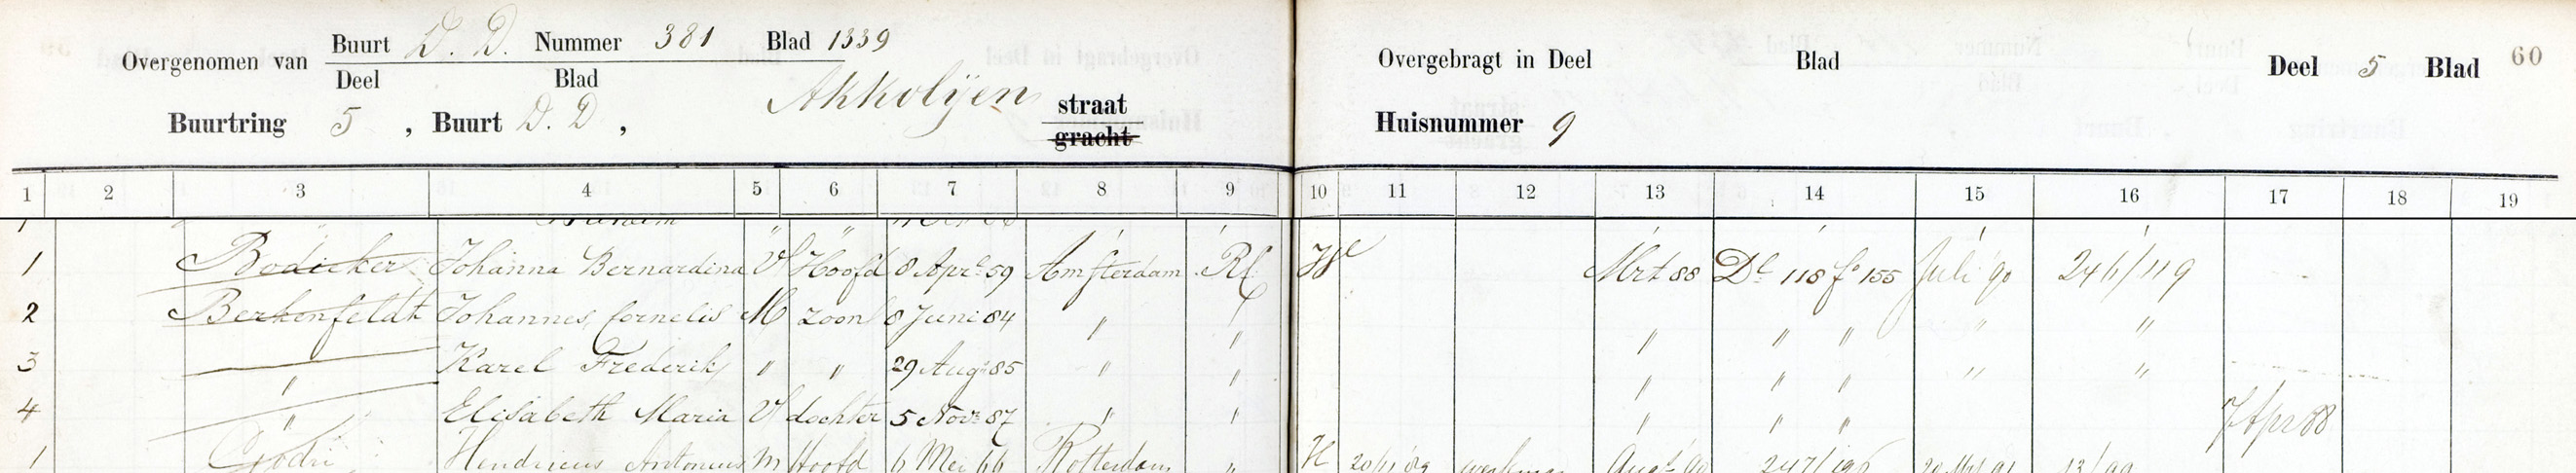 Overgenomen van Buurt D. D. Nummer 381 Blad 1339
Deel Blad
Akkolyen straat
gracht
Buurtring 5, Buurt D. D,
Overgebragt in Deel Blad Deel 5 Blad 60
Huisnummer 9
1 2 3 4 5 6 7 8 9 10 11 12 13 14 15 16 17 18 19
1 Bodicker Johanna Bernardina V Hoofd 8 Apr 59 Amsterdam RC We Mrt 88 Dl 118 fo 155 Juli 90 246/119
2 Berkenfeldt Johannes Cornelis M zoon 8 Juni 84 " " " " " " "
3 " Karel Frederik " " 29 Aug 85 " " " " " " "
4 " Elisabeth Maria V dochter 5 Nov 87 " " " " " 7 Apr 88
1 Godri Hendricus Antonius M Hoofd 6 Mei 66 Rotterdam " H